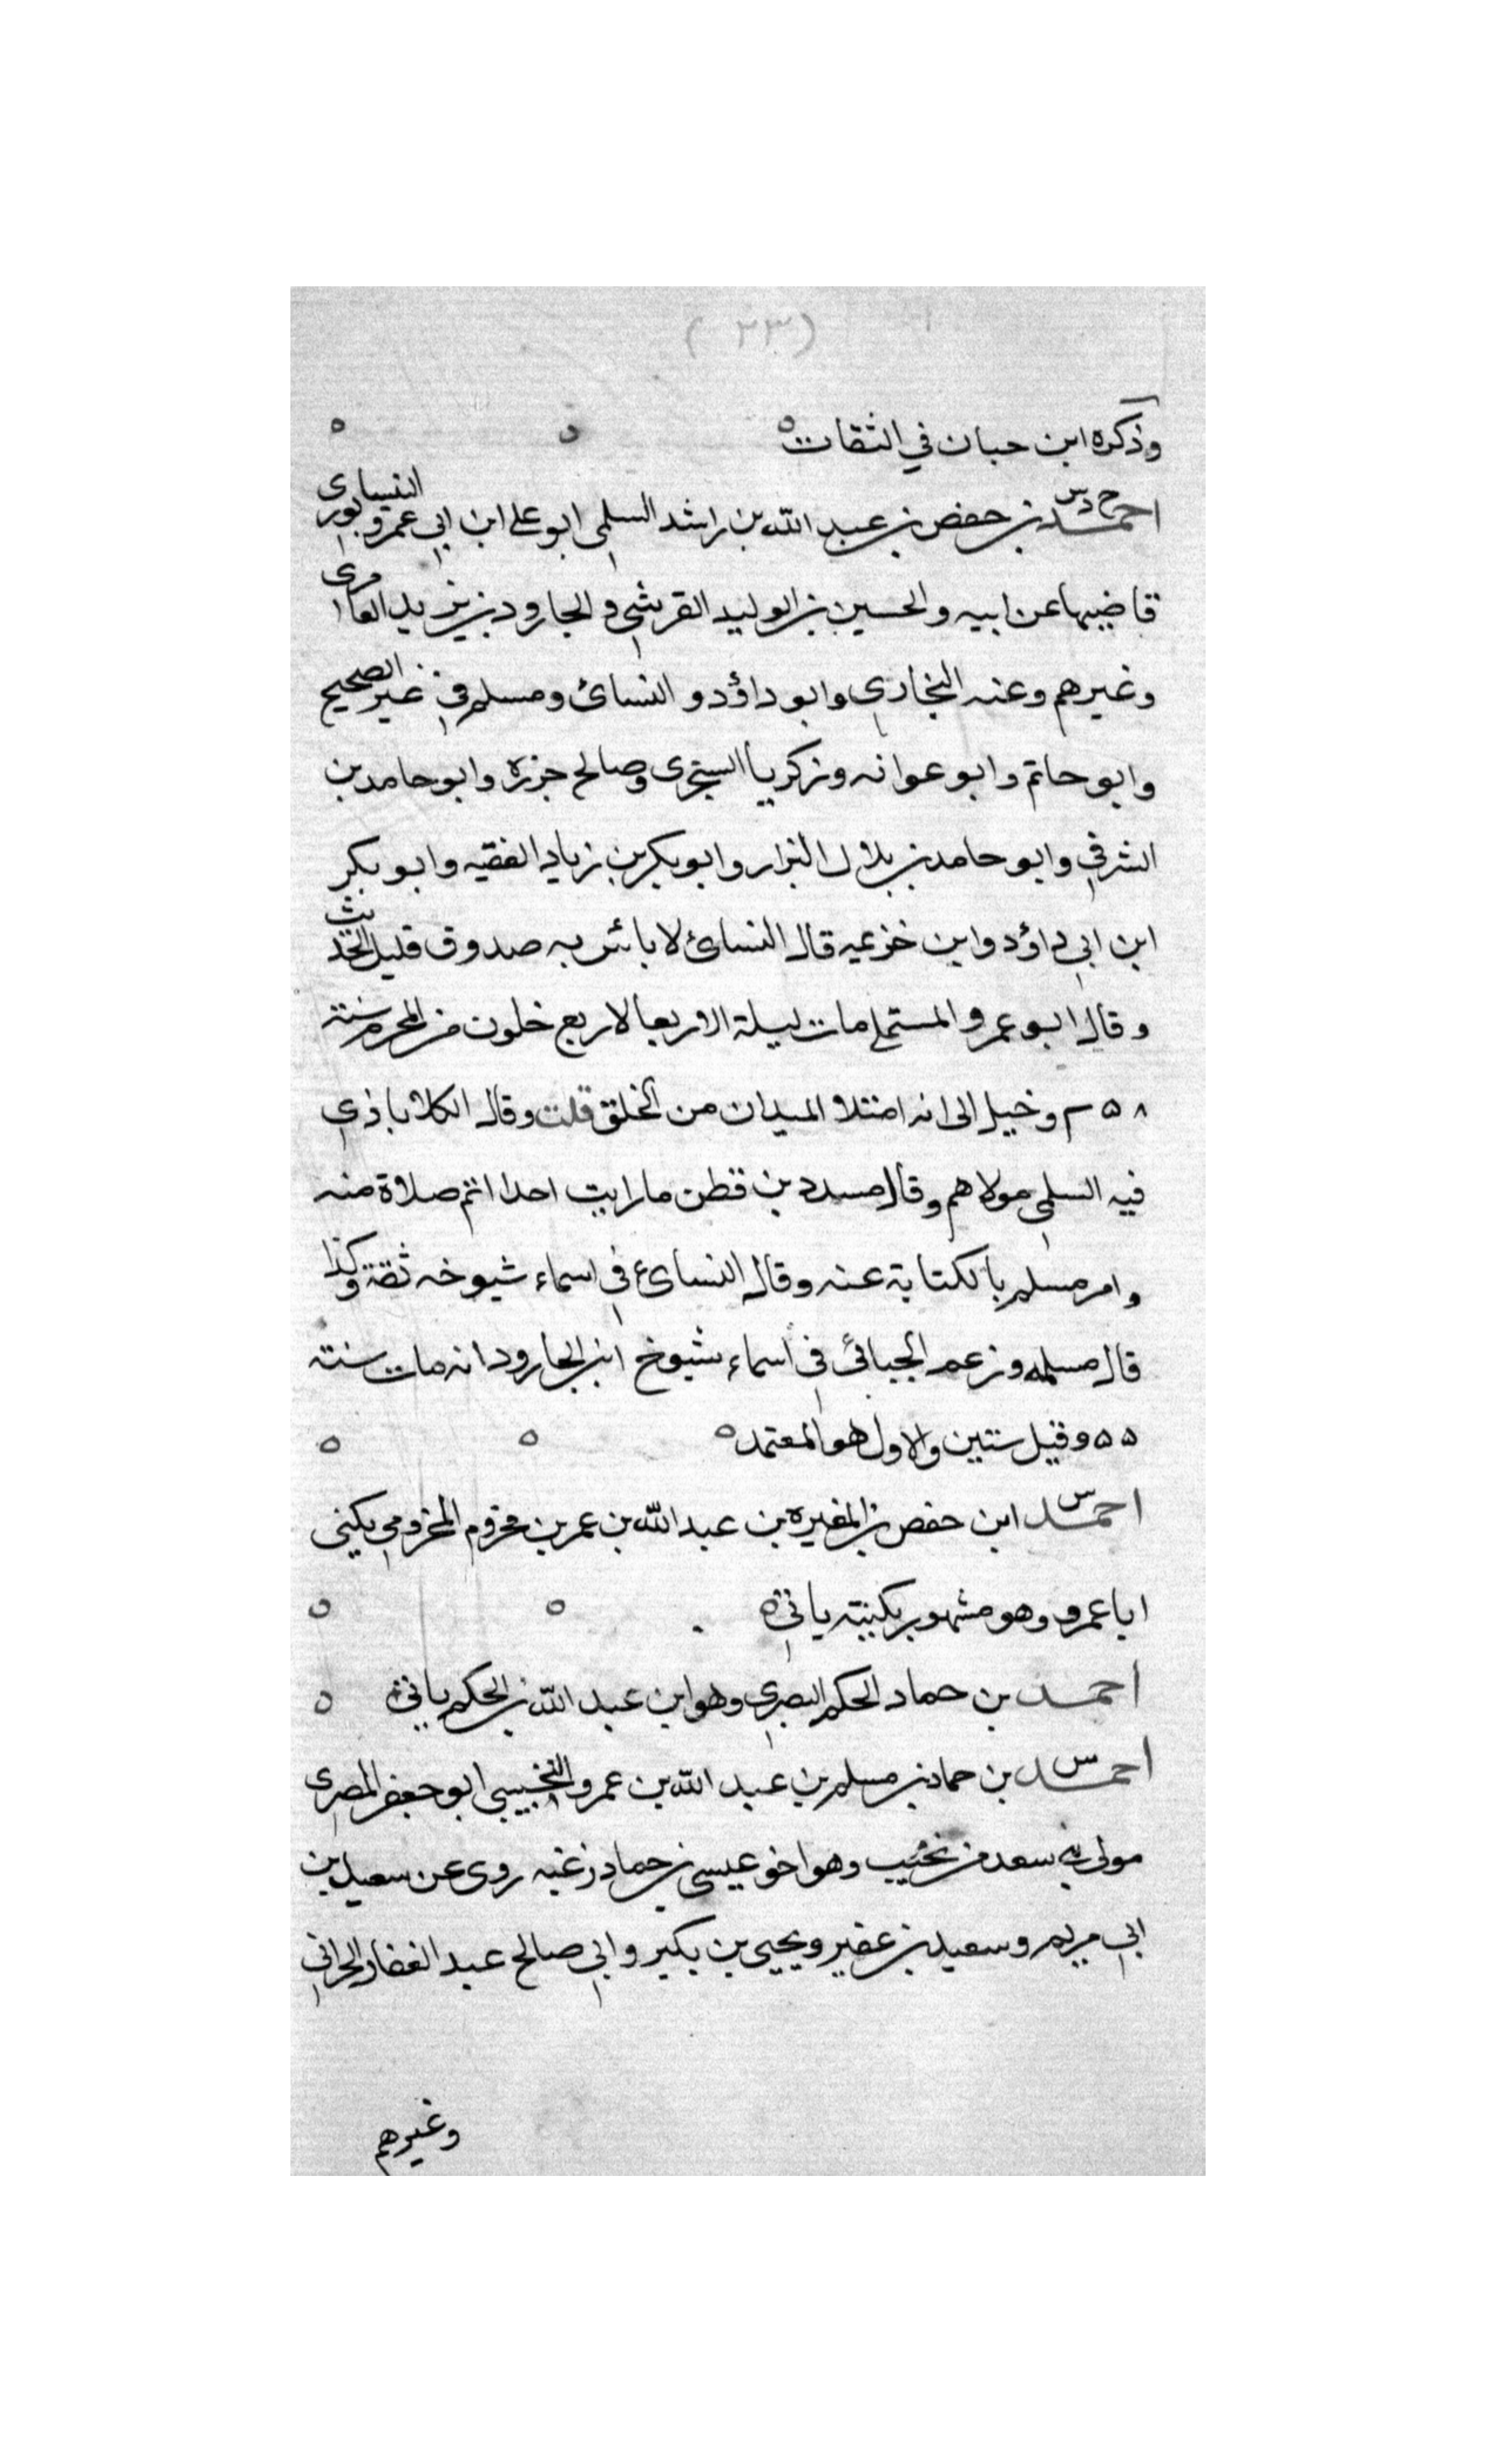 (٢٣)
وذكره ابن حبان في الثقات ه ه ه
احمد خ د س بن حفص بن عبد الله بن راشد السلمي ابو علي ابن ابي عمرو النيسابوري
قاضيها عن ابيه والحسين بن الوليد القرشي والجارود بن يزيد العامري
وغيرهم وعنه البخاري وابو داؤد والنسائ ومسلم في غير الصحيح
وابو حاتم وابو عوانه وزكريا السجزي وصالح جزره وابو حامد بن
الشرقي وابو حامد بن بلال البزار وابو بكر بن زياد الفقيه وابو بكر
ابن ابي داؤد وابن خزيمه قال النسائ لا بائس به صدوق قليل الحديث
وقال ابو عمرو المستملي مات ليلة الاربعا لاربع خلون من المحرم سنة
٢٥٨ وخيل الى انه امتلا الميدان من الخلق قلت وقال الكلاباذي
فيه السلمي مولاهم وقال مسدد بن قطن ما رايت احدا اتم صلاة منه
وامر مسلم بالكتابة عنه وقال النسائ في اسماء شيوخه ثقة وكذا
قال مسلمه وزعم الجيائي في اسماء شيوخ ابن الجارود انه مات سنة
٥٥ وقيل ستين والاول هو المعتمد ه ه ه
احمد س ابن حفص بن المغيره بن عبد الله بن عمر بن مخزوم المخزومي يكنى
ابا عمرو وهو مشهور بكنيته ياتي ه ه ه
احمد بن حماد الحكم البصري وهو ابن عبد الله بن الحكم ياتي ه ه
احمد س بن حماد بن مسلم بن عبد الله بن عمرو التجيبي ابو جعفر المصري
مولى بني سعد من تجيب وهو اخو عيسى بن حماد زغبه روى عن سعيد بن
ابي مريم وسعيد بن عفير ويحيى بن بكير وابي صالح عبد الغفار الحراني
وغيرهم